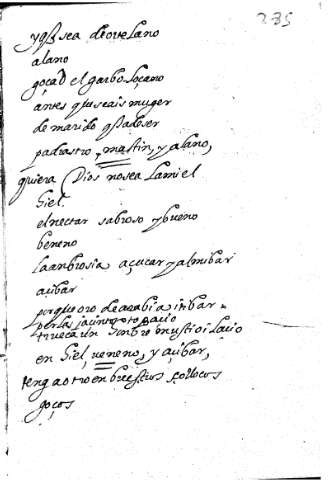 235
y qß sea de ortelano
alano
goçad el garbo loçano
antes qß seais muger
de marido qß a de ser
padrastro, mastin, y alano,
quiera Dios no sea la miel
hiel.
el nectar sabroso y bueno
beneno
la anbrosia açucar y almibar
açibar
porque oro de arabia in tibar
perlas jacinto topacio
trueca un honbro mustio i laçio
en hiel, veneno, y açibar,
tenga otro en bros
goços